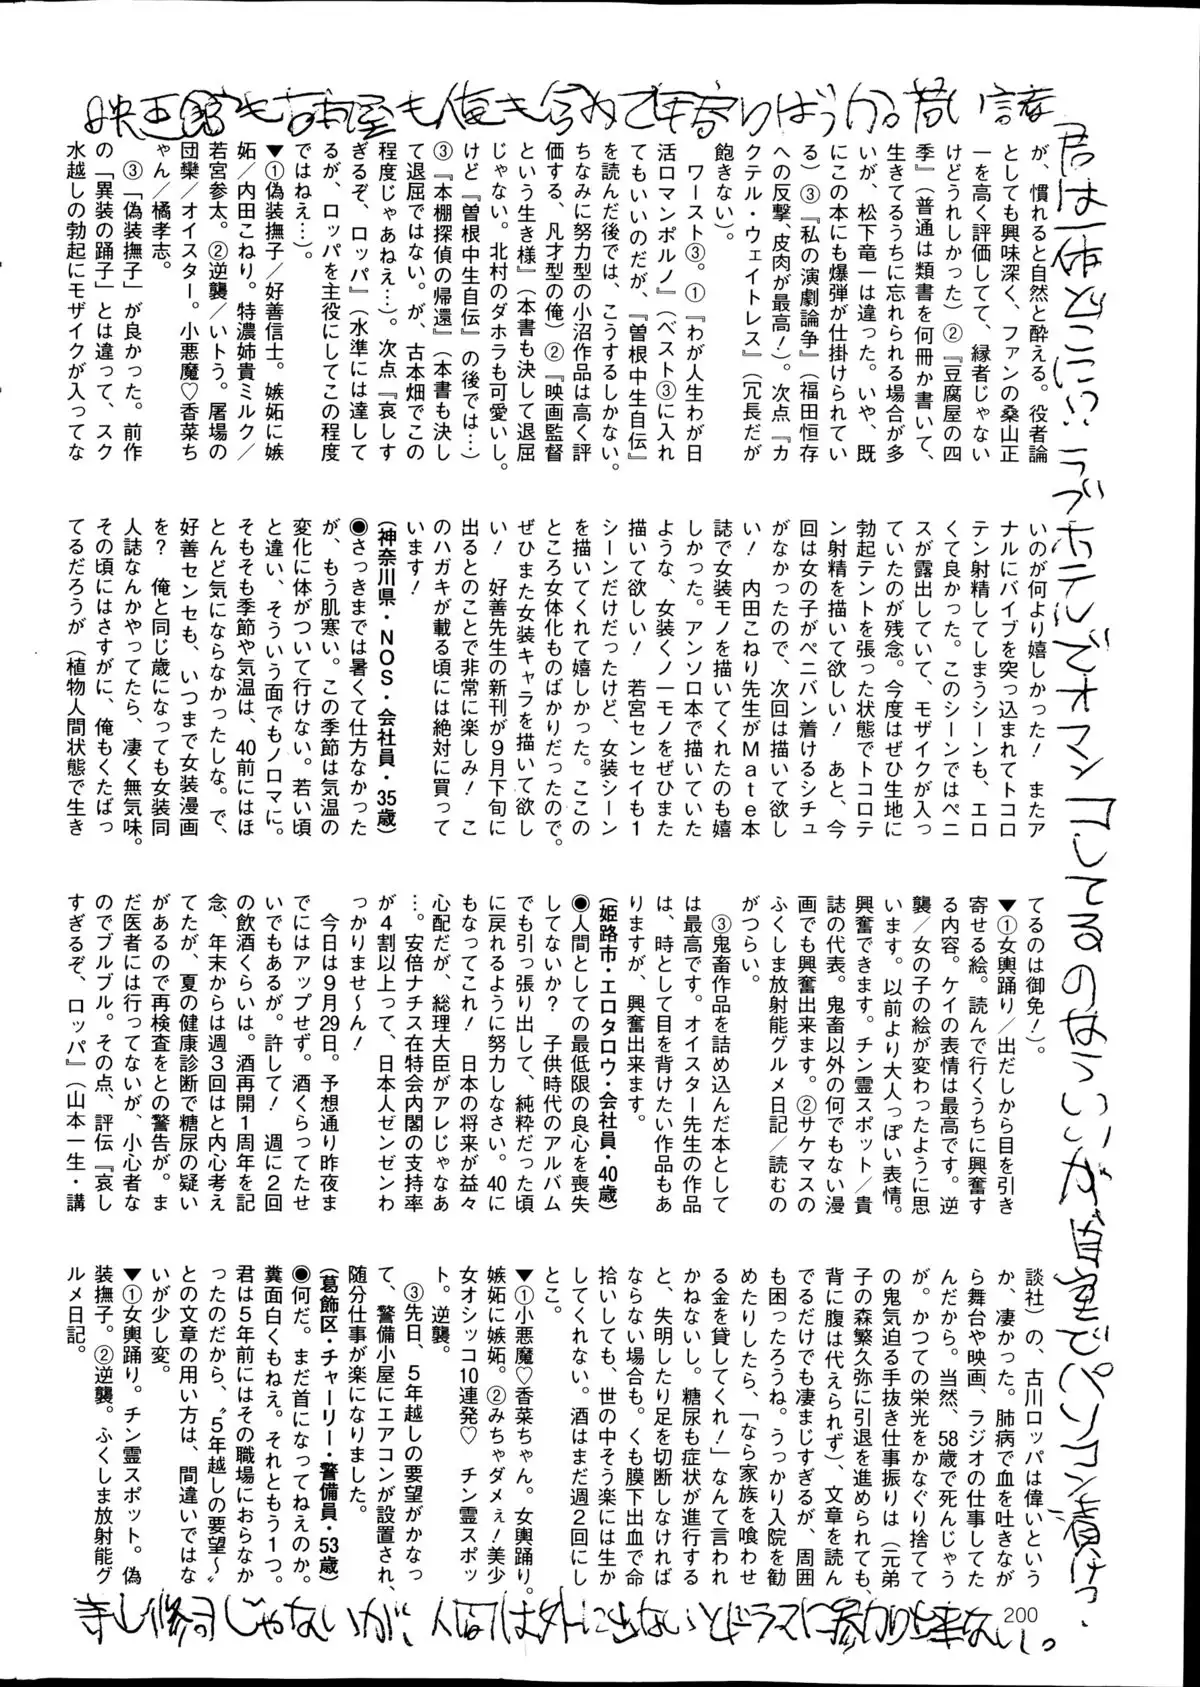 映画館も古本屋も俺も含めて年寄りばっか。若い諸
君は一体どこに!? ラブホテルでオマンコしてるのならいいが、自室でパソコン漬け?
が、慣れると自然と酔える。役者論
としても興味深く、ファンの桑山正
一を高く評価してて、縁者じゃない
けどうれしかった)②『豆腐屋の四
季』(普通は類書を何冊か書いて、
生きてるうちに忘れられる場合が多
いが、松下竜一は違った。いや、既
にこの本にも爆弾が仕掛けられてい
る)③『私の演劇論争』(福田恒存
への反撃、皮肉が最高!)。次点『カ
クテル・ウェイトレス』(冗長だが
飽きない)。
ワースト③。①『わが人生わが日
活ロマンポルノ』(ベスト③に入れ
てもいいのだが、『曽根中生自伝』
を読んだ後では、こうするしかない。
ちなみに努力型の小沼作品は高く評
価する、凡才型の俺)②『映画監督
という生き様』(本書も決して退屈
じゃない。北村のダホラも可愛いし。
けど『曽根中生自伝』の後では…)
③『本棚探偵の帰還』(本書も決し
て退屈ではない。が、古本畑でこの
程度じゃあねえ…)。次点『哀しす
ぎるぞ、ロッパ』(水準には達して
るが、ロッパを主役にしてこの程度
ではねえ…)。
▼①偽装撫子/好善信士。嫉妬に嫉
妬/内田こねり。特濃姉貴ミルク/
若宮参太。②逆襲/いトう。屠場の
団欒/オイスター。小悪魔♡香菜ち
ゃん/橘孝志。
③「偽装撫子」が良かった。前作
の「異装の踊子」とは違って、スク
水越しの勃起にモザイクが入ってな
いのが何より嬉しかった! またア
ナルにバイブを突っ込まれてトコロ
テン射精してしまうシーンも、エロ
くて良かった。このシーンではペニ
スが露出していて、モザイクが入っ
ていたのが残念。今度はぜひ生地に
勃起テントを張った状態でトコロテ
ン射精を描いて欲しい! あと、今
回は女の子がペニバン着けるシチュ
がなかったので、次回は描いて欲し
い! 内田こねり先生がMate本
誌で女装モノを描いてくれたのも嬉
しかった。アンソロ本で描いていた
ような、女装くノ一モノをぜひまた
描いて欲しい! 若宮センセイも1
シーンだけだったけど、女装シーン
を描いてくれて嬉しかった。ここの
ところ女体化ものばかりだったので。
ぜひまた女装キャラを描いて欲し
い! 好善先生の新刊が9月下旬に
出るとのことで非常に楽しみ! こ
のハガキが載る頃には絶対に買って
います!
(神奈川県・NOS・会社員・35歳)
◉さっきまでは暑くて仕方なかった
が、もう肌寒い。この季節は気温の
変化に体がついて行けない。若い頃
と違い、そういう面でもノロマに。
そもそも季節や気温は、40前にはほ
とんど気にならなかったしな。で、
好善センセも、いつまで女装漫画
を? 俺と同じ歳になっても女装同
人誌なんかやってたら、凄く無気味。
その頃にはさすがに、俺もくたばっ
てるだろうが(植物人間状態で生き
てるのは御免!)。
▼①女輿踊り/出だしから目を引き
寄せる絵。読んで行くうちに興奮す
る内容。ケイの表情は最高です。逆
襲/女の子の絵が変わったように思
います。以前より大人っぽい表情。
興奮できます。チン霊スポット/貴
誌の代表。鬼畜以外の何でもない漫
画でも興奮出来ます。②サケマスの
ふくしま放射能グルメ日記/読むの
がつらい。
③鬼畜作品を詰め込んだ本として
は最高です。オイスター先生の作品
は、時として目を背けたい作品もあ
りますが、興奮出来ます。
(姫路市・エロタロウ・会社員・40歳)
◉人間としての最低限の良心を喪失
してないか? 子供時代のアルバム
でも引っ張り出して、純粋だった頃
に戻れるように努力しなさい。40に
もなってこれ! 日本の将来が益々
心配だが、総理大臣がアレじゃなあ
…。安倍ナチス在特会内閣の支持率
が4割以上って、日本人ゼンゼンわ
っかりませ〜ん!
今日は9月29日。予想通り昨夜ま
でにはアップせず。酒くらってたせ
いでもあるが。許して! 週に2回
の飲酒くらいは。酒再開1周年を記
念、年末からは週3回はと内心考え
てたが、夏の健康診断で糖尿の疑い
があるので再検査をとの警告が。ま
だ医者には行ってないが、小心者な
のでブルブル。その点、評伝『哀し
すぎるぞ、ロッパ』(山本一生・講
談社)の、古川ロッパは偉いという
か、凄かった。肺病で血を吐きなが
ら舞台や映画、ラジオの仕事してた
んだから。当然、58歳で死んじゃう
が。かつての栄光をかなぐり捨てて
の鬼気迫る手抜き仕事振りは(元弟
子の森繁久弥に引退を進められても、
背に腹は代えられず)、文章を読ん
でるだけでも凄まじすぎるが、周囲
も困ったろうね。うっかり入院を勧
めたりしたら、「なら家族を喰わせ
る金を貸してくれ!」なんて言われ
かねないし。糖尿も症状が進行する
と、失明したり足を切断しなければ
ならない場合も。くも膜下出血で命
拾いしても、世の中そう楽には生か
してくれない。酒はまだ週2回にし
とこ。
▼①小悪魔♡香菜ちゃん。女輿踊り。
嫉妬に嫉妬。②みちゃダメぇ!美少
女オシッコ10連発♡ チン霊スポッ
ト。逆襲。
③先日、5年越しの要望がかなっ
て、警備小屋にエアコンが設置され、
随分仕事が楽になりました。
(葛飾区・チャーリー・警備員・53歳)
◉何だ。まだ首になってねえのか。
糞面白くもねえ。それともう1つ。
君は5年前にはその職場におらなか
ったのだから、〝5年越しの要望〟
との文章の用い方は、間違いではな
いが少し変。
▼①女輿踊り。チン霊スポット。偽
装撫子。②逆襲。ふくしま放射能グ
ルメ日記。
寺山修司じゃないが、人間は外に出ないとドラマに参加出来ない。
200